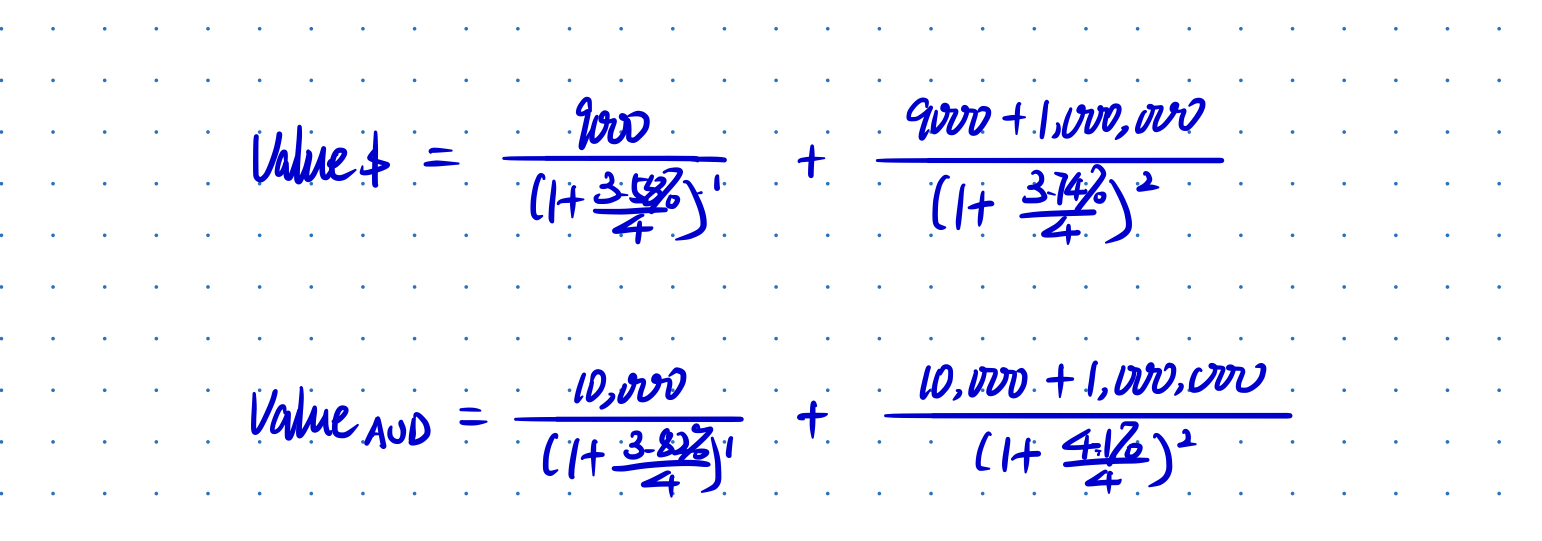 Value $ = 9000 / (1 + 3.58% / 4)^1 + 9000 + 1,000,000 / (1 + 3.74% / 4)^2
Value AUD = 10,000 / (1 + 3.82% / 4)^1 + 10,000 + 1,000,000 / (1 + 4.1% / 4)^2